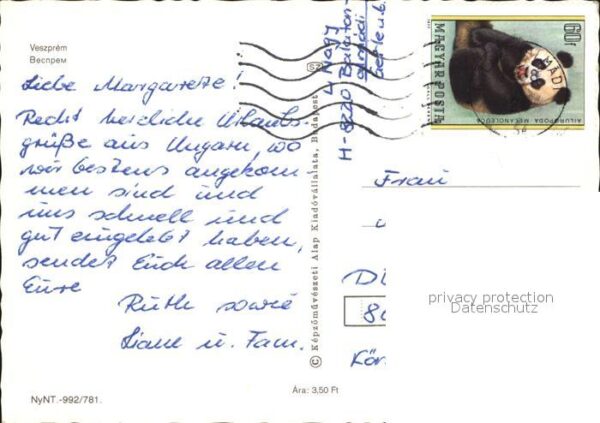 Veszprém
Веспрем
Liebe Margarete!
Recht herzliche Urlaubs-
grüße aus Ungarn, wo
wir bestens angekom-
men sind und
uns schnell und
gut eingelebt haben,
sendet Euch allen
Eure
Ruth sowie
Liane u. Fam.
NyNT.-992/781.
Ára: 3,50 Ft
© Képzőművészeti Alap Kiadóvállalata, Budapest
Nagy
H-8220 Balaton-
60f
MAGYAR POSTA
AILUROPODA MELANOLEUCA
MÁDI
Frau
privacy protection
Datenschutz